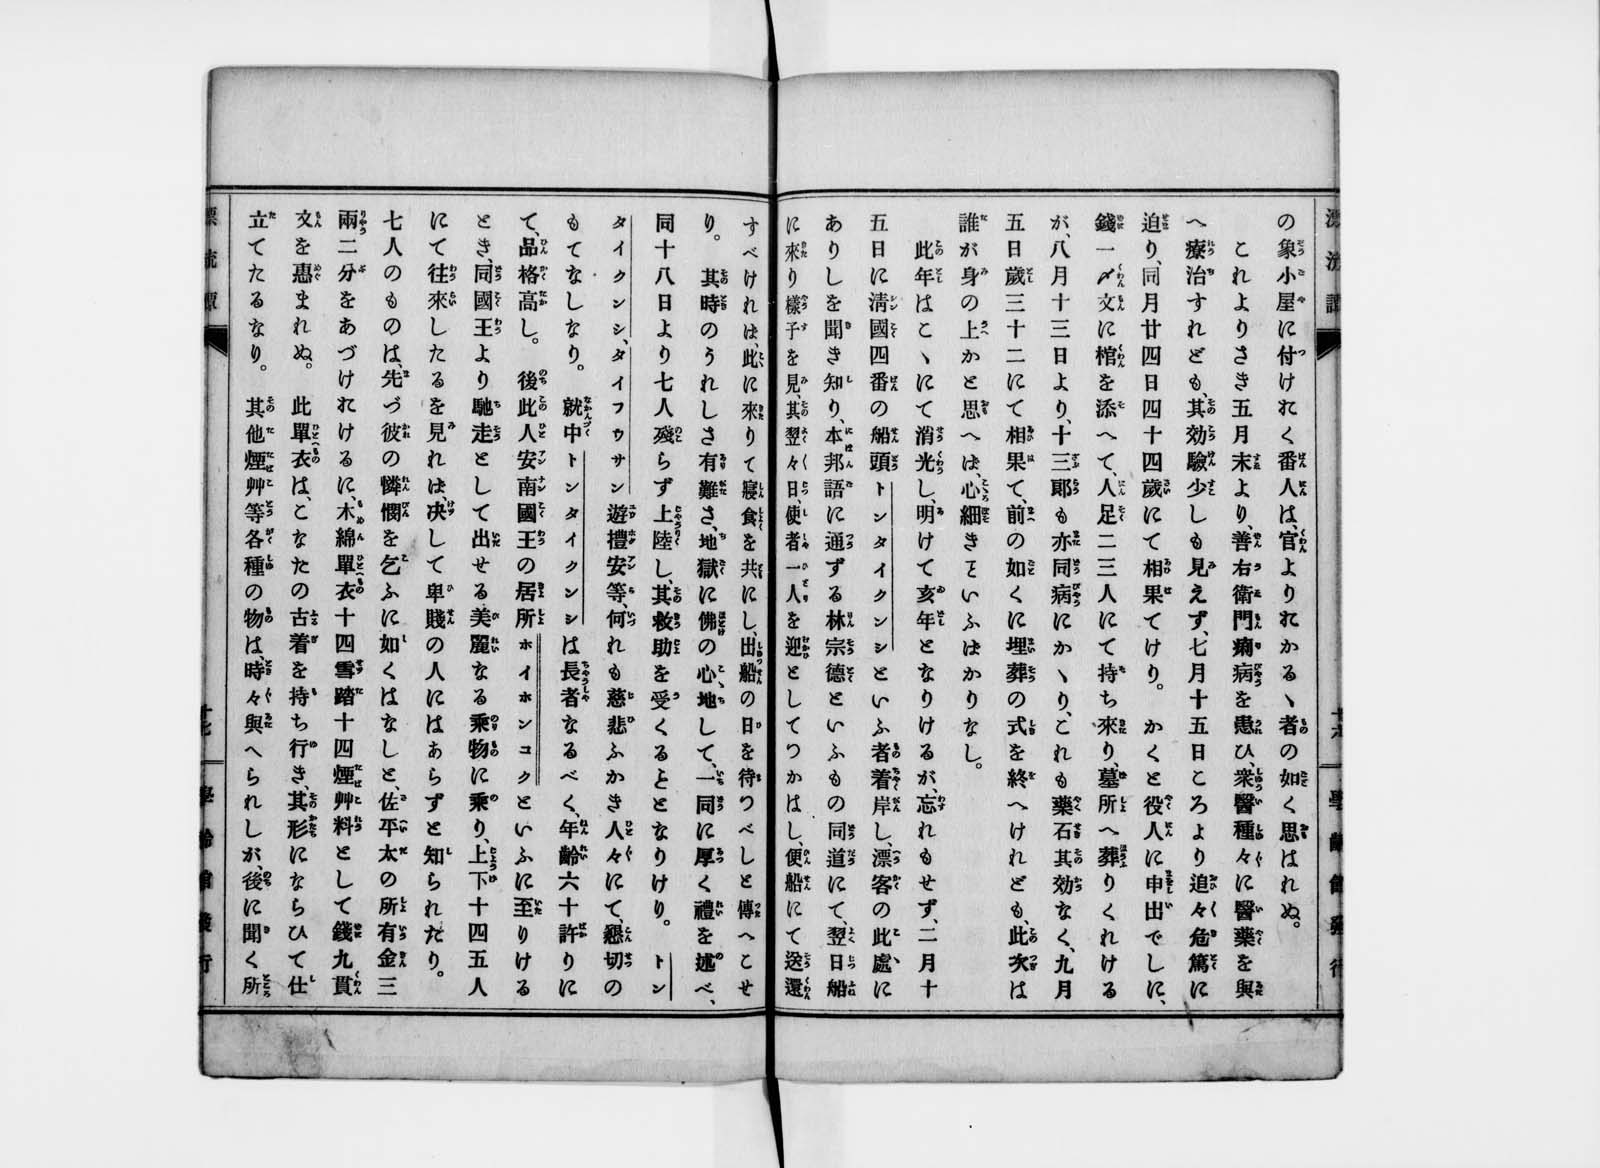 漂流譚
十六
學齡館發行
の象小屋に付けれく番人は、官よりれかるゝ者の如く思はれぬ。
これよりさき五月末より、善右衛門痢病を患ひ、衆醫種々に醫藥を與
へ療治すれども、其効驗少しも見えず、七月十五日ころより追々危篤に
迫り、同月廿四日四十四歲にて相果てけり。かくと役人に申出でしに、
錢一〆文に棺を添へて、人足二三人にて持ち來り、墓所へ葬りくれける
が、八月十三日より、十三郞も亦同病にかゝり、これも藥石其効なく、九月
五日歲三十二にて相果て、前の如くに埋葬の式を終へけれども、此次は
誰が身の上かと思へは、心細きといふはかりなし。
此年はこゝにて消光し、明けて亥年となりけるが、忘れもせず、二月十
五日に淸國四番の船頭トンタイクンシといふ者着岸し、漂客の此處に
ありしを聞き知り、本邦語に通ずる林宗德といふもの同道にて、翌日船
に來り樣子を見、其翌々日、使者一人を迎としてつかはし、便船にて送還
すべけれは、此に來りて寢食を共にし、出船の日を待つべしと傳へこせ
り。其時のうれしさ有難さ、地獄に佛の心地して、一同に厚く禮を述べ、
同十八日より七人殘らず上陸し、其救助を受くるととなりけり。トン
タイクンシ、タイフウサン遊禮安等、何れも慈悲ふかき人々にて、懇切の
もてなしなり。就中トンタイクンシは長者なるべく、年齡六十許りに
て、品格高し。後此人安南國王の居所ホイホンコクといふに至りける
とき、同國王より馳走として出せる美麗なる乘物に乘り、上下十四五人
にて往來したるを見れは、决して卑賤の人にはあらずと知られたり。
七人のものは、先づ彼の憐憫を乞ふに如くはなしと、佐平太の所有金三
兩二分をあづけれけるに、木綿單衣十四雪踏十四煙艸料として錢九貫
文を惠まれぬ。此單衣は、こなたの古着を持ち行き、其形にならひて仕
立てたるなり。其他煙艸等各種の物は、時々與へられしが、後に聞く所
漂流譚
十七
學齡館發行